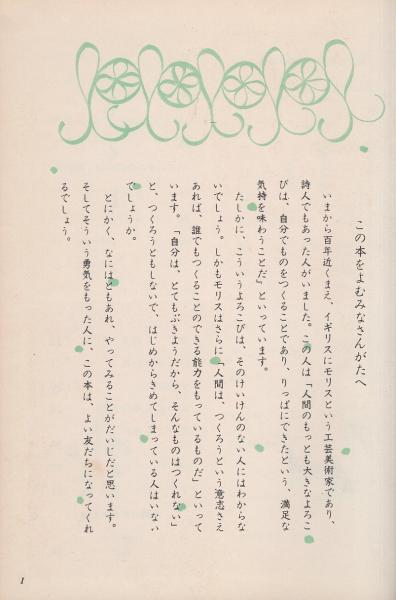 この本をよむみなさんがたへ
いまから百年近くまえ、イギリスにモリスという工芸美術家であり、
詩人でもあった人がいました。この人は「人間のもっとも大きなよろこ
びは、自分でものをつくることであり、りっぱにできたという、満足な
気持を味わうことだ」といっています。
たしかに、こういうよろこびは、そのけいけんのない人にはわからな
いでしょう。しかもモリスはさらに「人間は、つくろうという意志さえ
あれば、誰でもつくることのできる能力をもっているものだ」といって
います。「自分は、とてもぶきようだから、そんなものはつくれない」
と、つくろうともしないで、はじめからきめてしまっている人はいない
でしょうか。
とにかく、なにはともあれ、やってみることがだいじだと思います。
そしてそういう勇気をもった人に、この本は、よい友だちになってくれ
るでしょう。
1